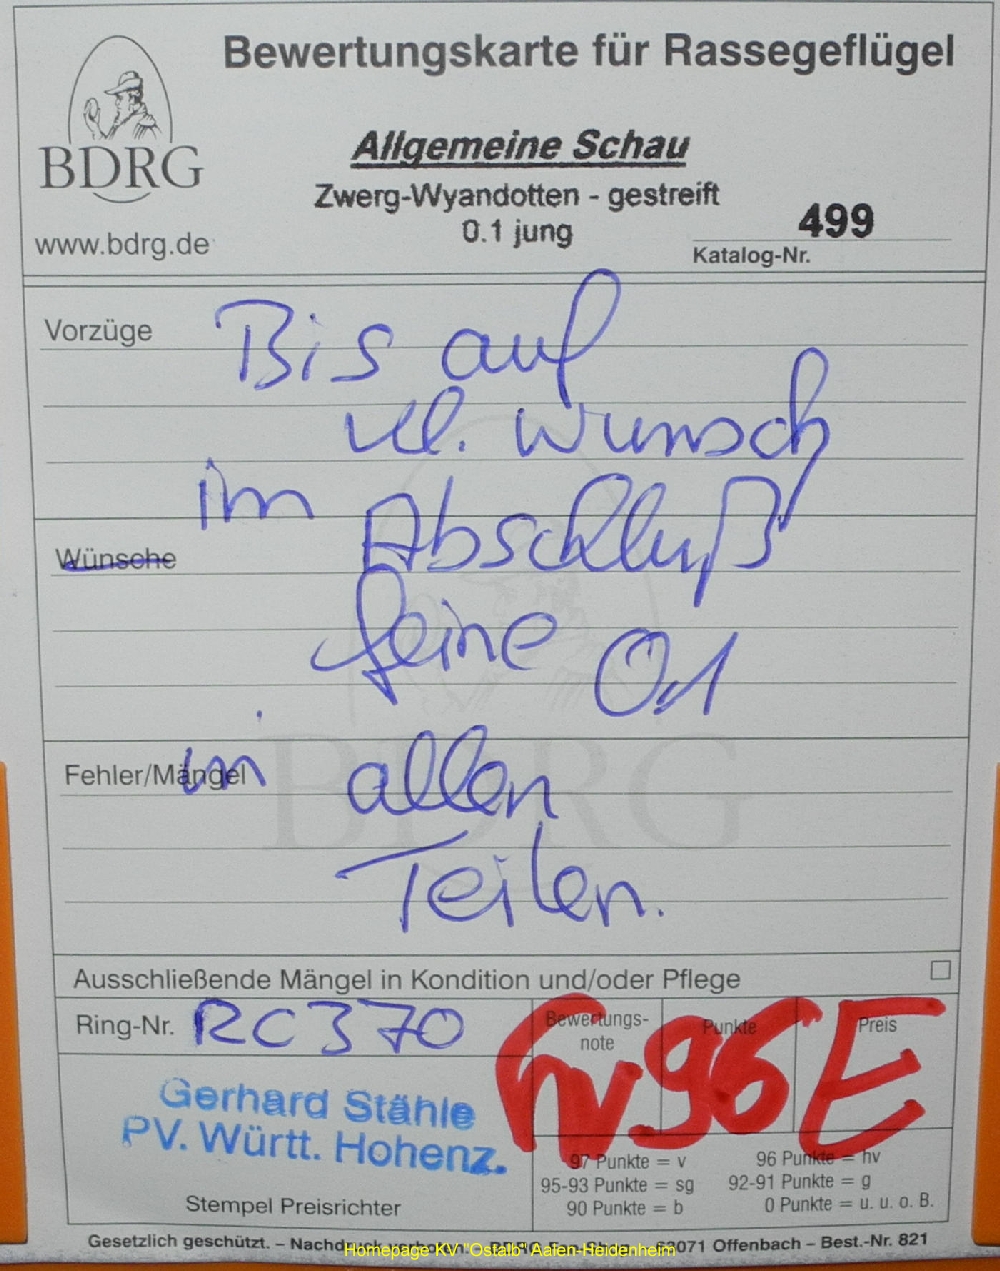 Bewertungskarte für Rassegeflügel
BDRG
Allgemeine Schau
Zwerg-Wyandotten - gestreift
0.1 jung
499
www.bdrg.de
Katalog-Nr.
Vorzüge
Bis auf
kl. Wunsch
im Abschluß
Wünsche
feine 0,1
Fehler/Mängel
in allen
BDRG
Teilen.
Ausschließende Mängel in Kondition und/oder Pflege
Ring-Nr. RC 370
Bewertungs-
note
Punkte
Preis
hv 96 E
Gerhard Stähle
PV. Württ. Hohenz.
97 Punkte = v
96 Punkte = hv
95-93 Punkte = sg
92-91 Punkte = g
90 Punkte = b
0 Punkte = u. u. o. B.
Stempel Preisrichter
Gesetzlich geschützt. – Nachdruck 63071 Offenbach – Best.-Nr. 821
Homepage KV "Ostalb" Aalen-Heidenheim